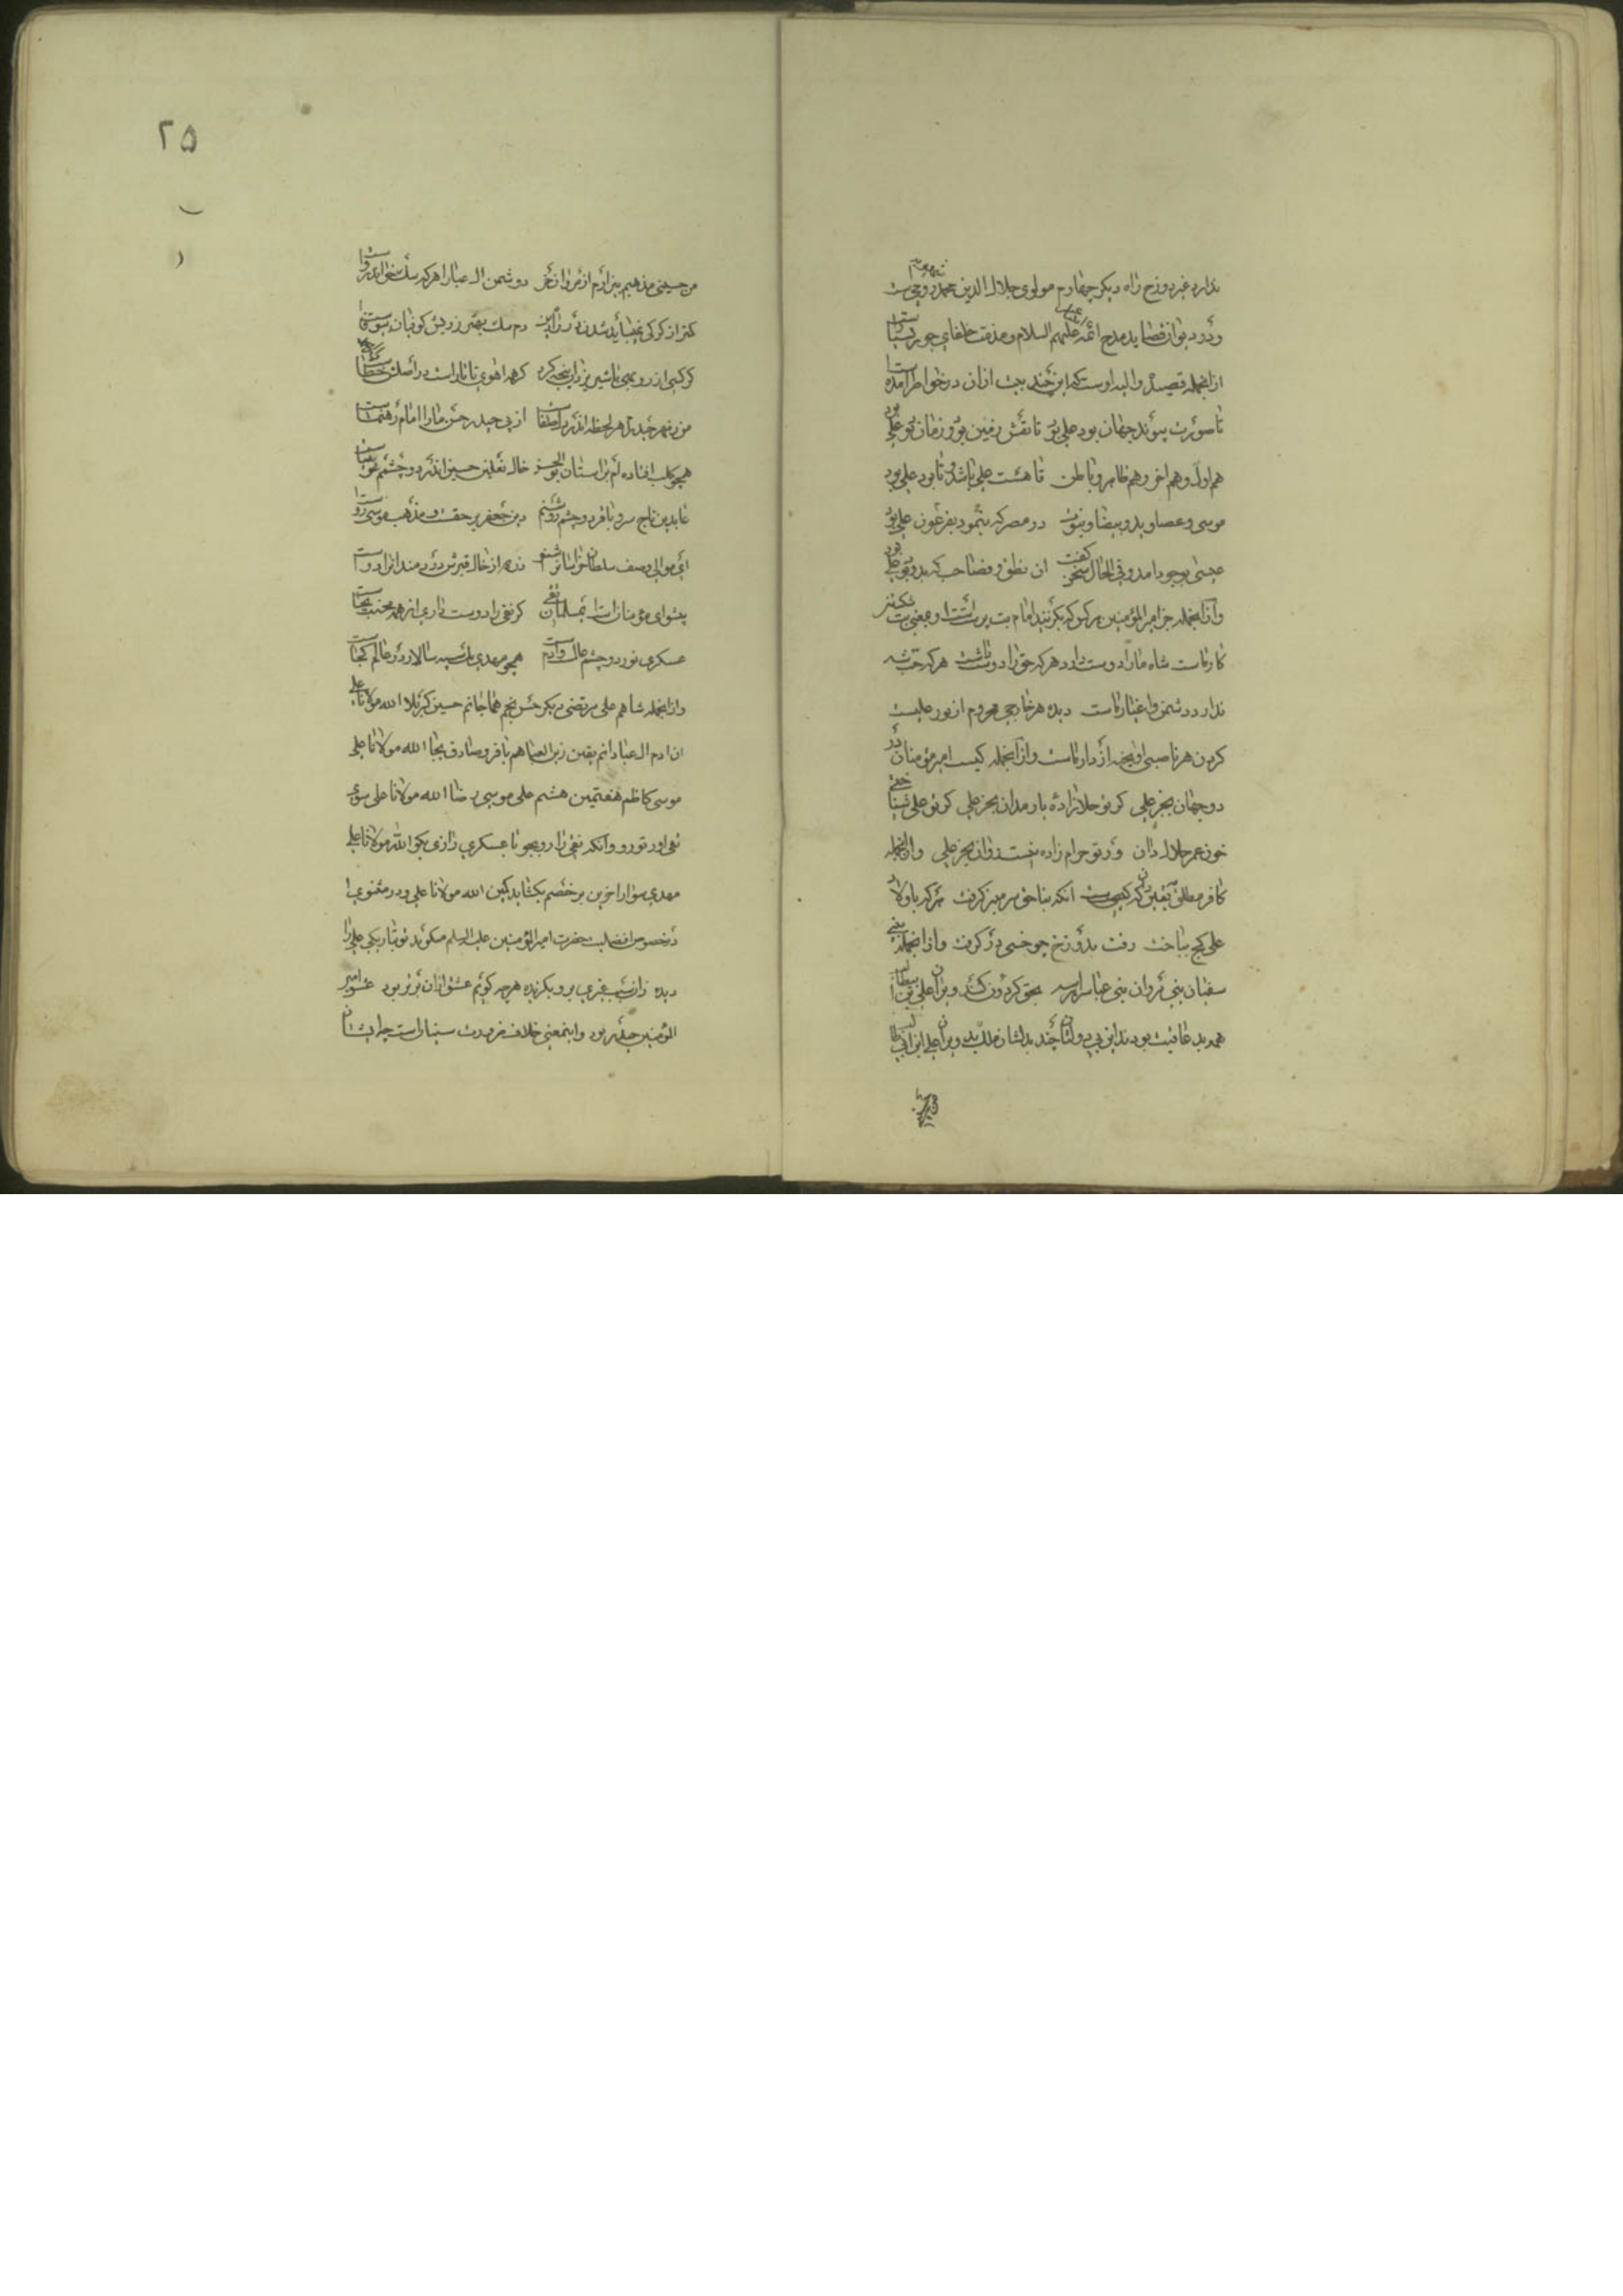 ندارد غیر دوزخ راه دیگر چهارم مولوی جلال الدین محمد رومی است
و در دیوان قصاید مدح ائمه علیهم السلام و مذمت خلفای جور بسیار است
از انجمله قصیده والیه اوست که این چند بیت ازان در خواطر امده
تا صورت پیوند جهان بود علی بود تا نقش زمین بود و زمان بود علی بود
هم اول و هم اخر و هم ظاهر و باطن تا هست علی باشد و تا بود علی بود
موسی و عصا و ید و بیضا و نبوت در مصر که بنمود بفرعون علی بود
عیسی بوجود امد و فی الحال سخن گفت ان نطق و فصاحت که بدو بود علی بود
و از انجمله جز امیر المؤمنین هر کو که بگزیند امام بت پرست است و
کار ماست شاه مارا دوست دارد هر که حق را دوست هر که
ندارد دشمن و اغیار ماست دیده هر خارجی محروم از نور علیست
گردن هر ناصبی اویخته از دار ماست و از انجمله کیست امیر مؤمنان در
دو جهان بجز علی گر تو حلالزاده بار مدان بجز علی گر تو علی شناختی
خون عمر حلال دان ور تو حرام زاده بجز علی و از انجمله
کافر مطلق بیقین دان که کیست انکه بناحق سر منبر گرفت هر که با ولاد
علی کج بباخت رفت بدوزخ چو خسی در گرفت و از انجمله بنی
سفیان بنی مروان بنی عباس بحق گردون کشد ویران علی بن ابیطالب
همه بد عاقبت بودند این بی دولتان چند ویران علی ابن ابی طالب
۲۵
من حسینی مذهبم بیزارم از مروان خر دوشمن ال عبا را هر که سگ خواند رواست
کمتر از گرگی نمیباید شدن در راه دین دم سگ بهتر ز ریش کوفیان بیوفاست
گر کسی از روبهی با شیر یزدان پنجه کرد گر همه اهوی تاتار است در اصلش خطاست
من ز مهر حیدرم هر لحظه اندر دل صفاست از پی حیدر حسن مارا امام رهنماست
همچو کلب افتاده ام بر استان بو الحسن خاک نعلین حسین اندر دو چشمم توتیاست
عابدین تاج سر و باقر دو چشم روشنم دین جعفر بر حقست و مذهب موسی رواست
ای موالی وصف سلطان خراسان را شنو ذره از خاک قبرش دردمندانرا دواست
پیشوای مؤمنان است ای مسلمانان تقی گر نقی را دوست داری از همه محنت نجات
عسکری نور دو چشم عالم و ادم همچو مهدی یک سپه سالار در عالم کجاست
و از انجمله شاهم علی مرتضی دیگر حسن نجم هما جانم حسین کربلا الله مولانا علی
ان ادم ال عبا دانم یقین زین العبا هم باقر و صادق بجا الله مولانا علی
موسی کاظم هفتمین هشتم علی موسی رضا الله مولانا علی سوی
تقی اور تو رو وانگه نقی را رو بجو تا عسکری رازی بگو الله مولانا علی
مهدی سوار اخرین بر خصم بگشاید کمین الله مولانا علی و در مثنوی
در خصوص افضلیت حضرت امیر المؤمنین علیه السلم میگوید تو بتاریکی علی را
دیده زان سبب غیری برو بگزیده هرچه گویم عشق ازان برتر بود عشق امیر
المؤمنین حیدر بود و اینمعنی خلاف ضرورت سنیان است چرا ایشان